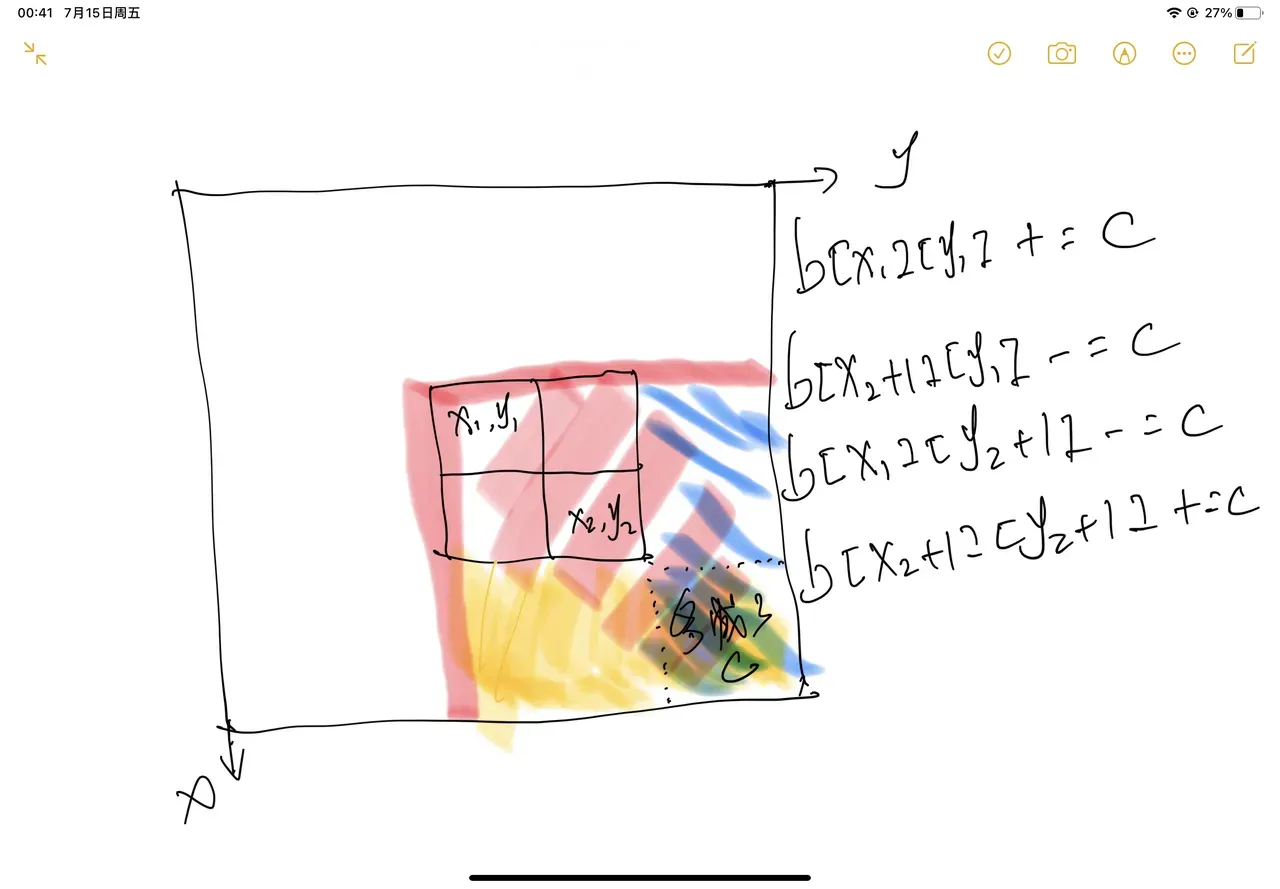 00:41 7月15日周五
27%
y
b[x₁][y₁] += c
b[x₂+1][y₁] -= c
x₁,y₁
b[x₁][y₂+1] -= c
x₂,y₂
b[x₂+1][y₂+1] += c
多减了
c
x